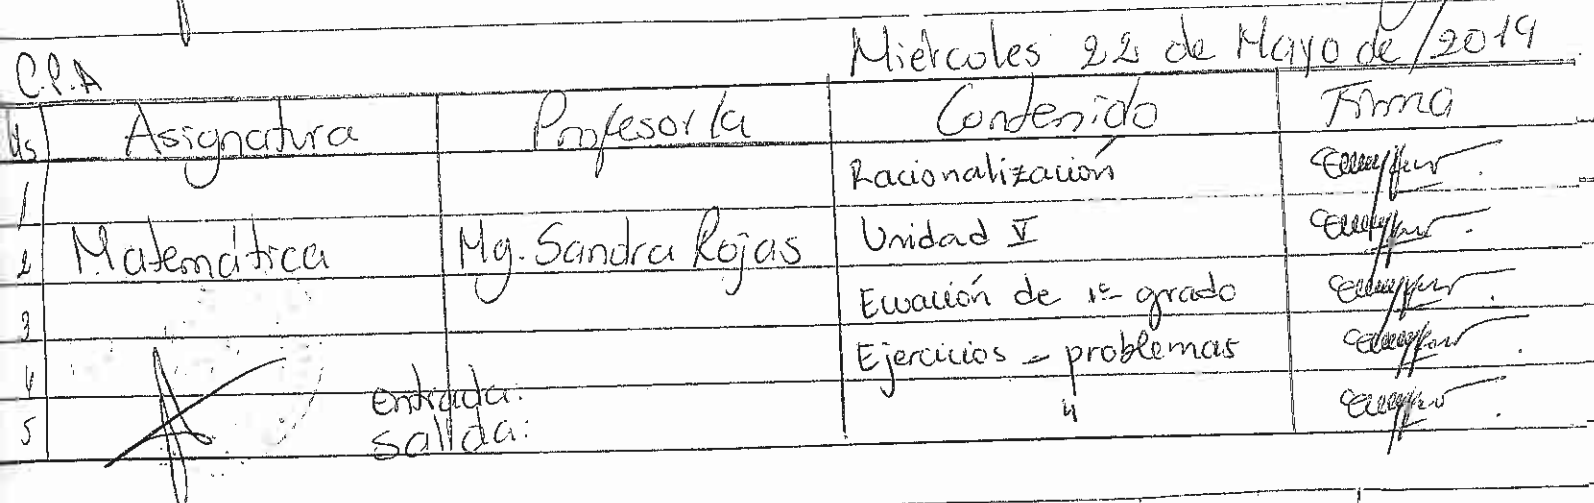 C.P.A Miércoles 22 de Mayo de/2019
Hs Asignatura Profesor/a Contenido Firma
1 Racionalización
2 Matemática Mg. Sandra Rojas Unidad V
3 Ecuación de 1º grado
4 Ejercicios - problemas
entrada:
5 salida: "